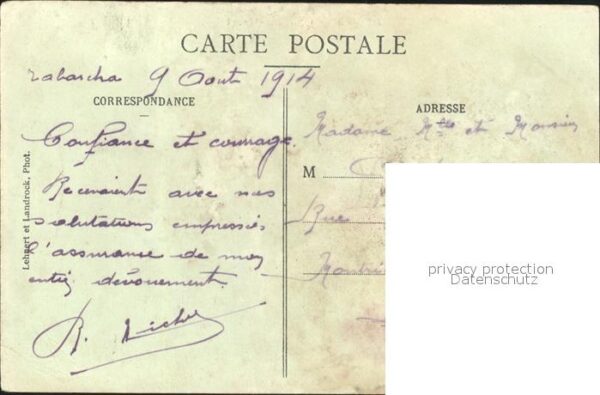 CARTE POSTALE
9 Aout 1914
CORRESPONDANCE
ADRESSE
Confiance et courage.
Recevaient avec nos
salutations empressées
l'assurance de mon
entier dévouement.
Madame Mlle et Monsieur
M
Rue
Lehnert et Landrock, Phot.
privacy protection
Datenschutz